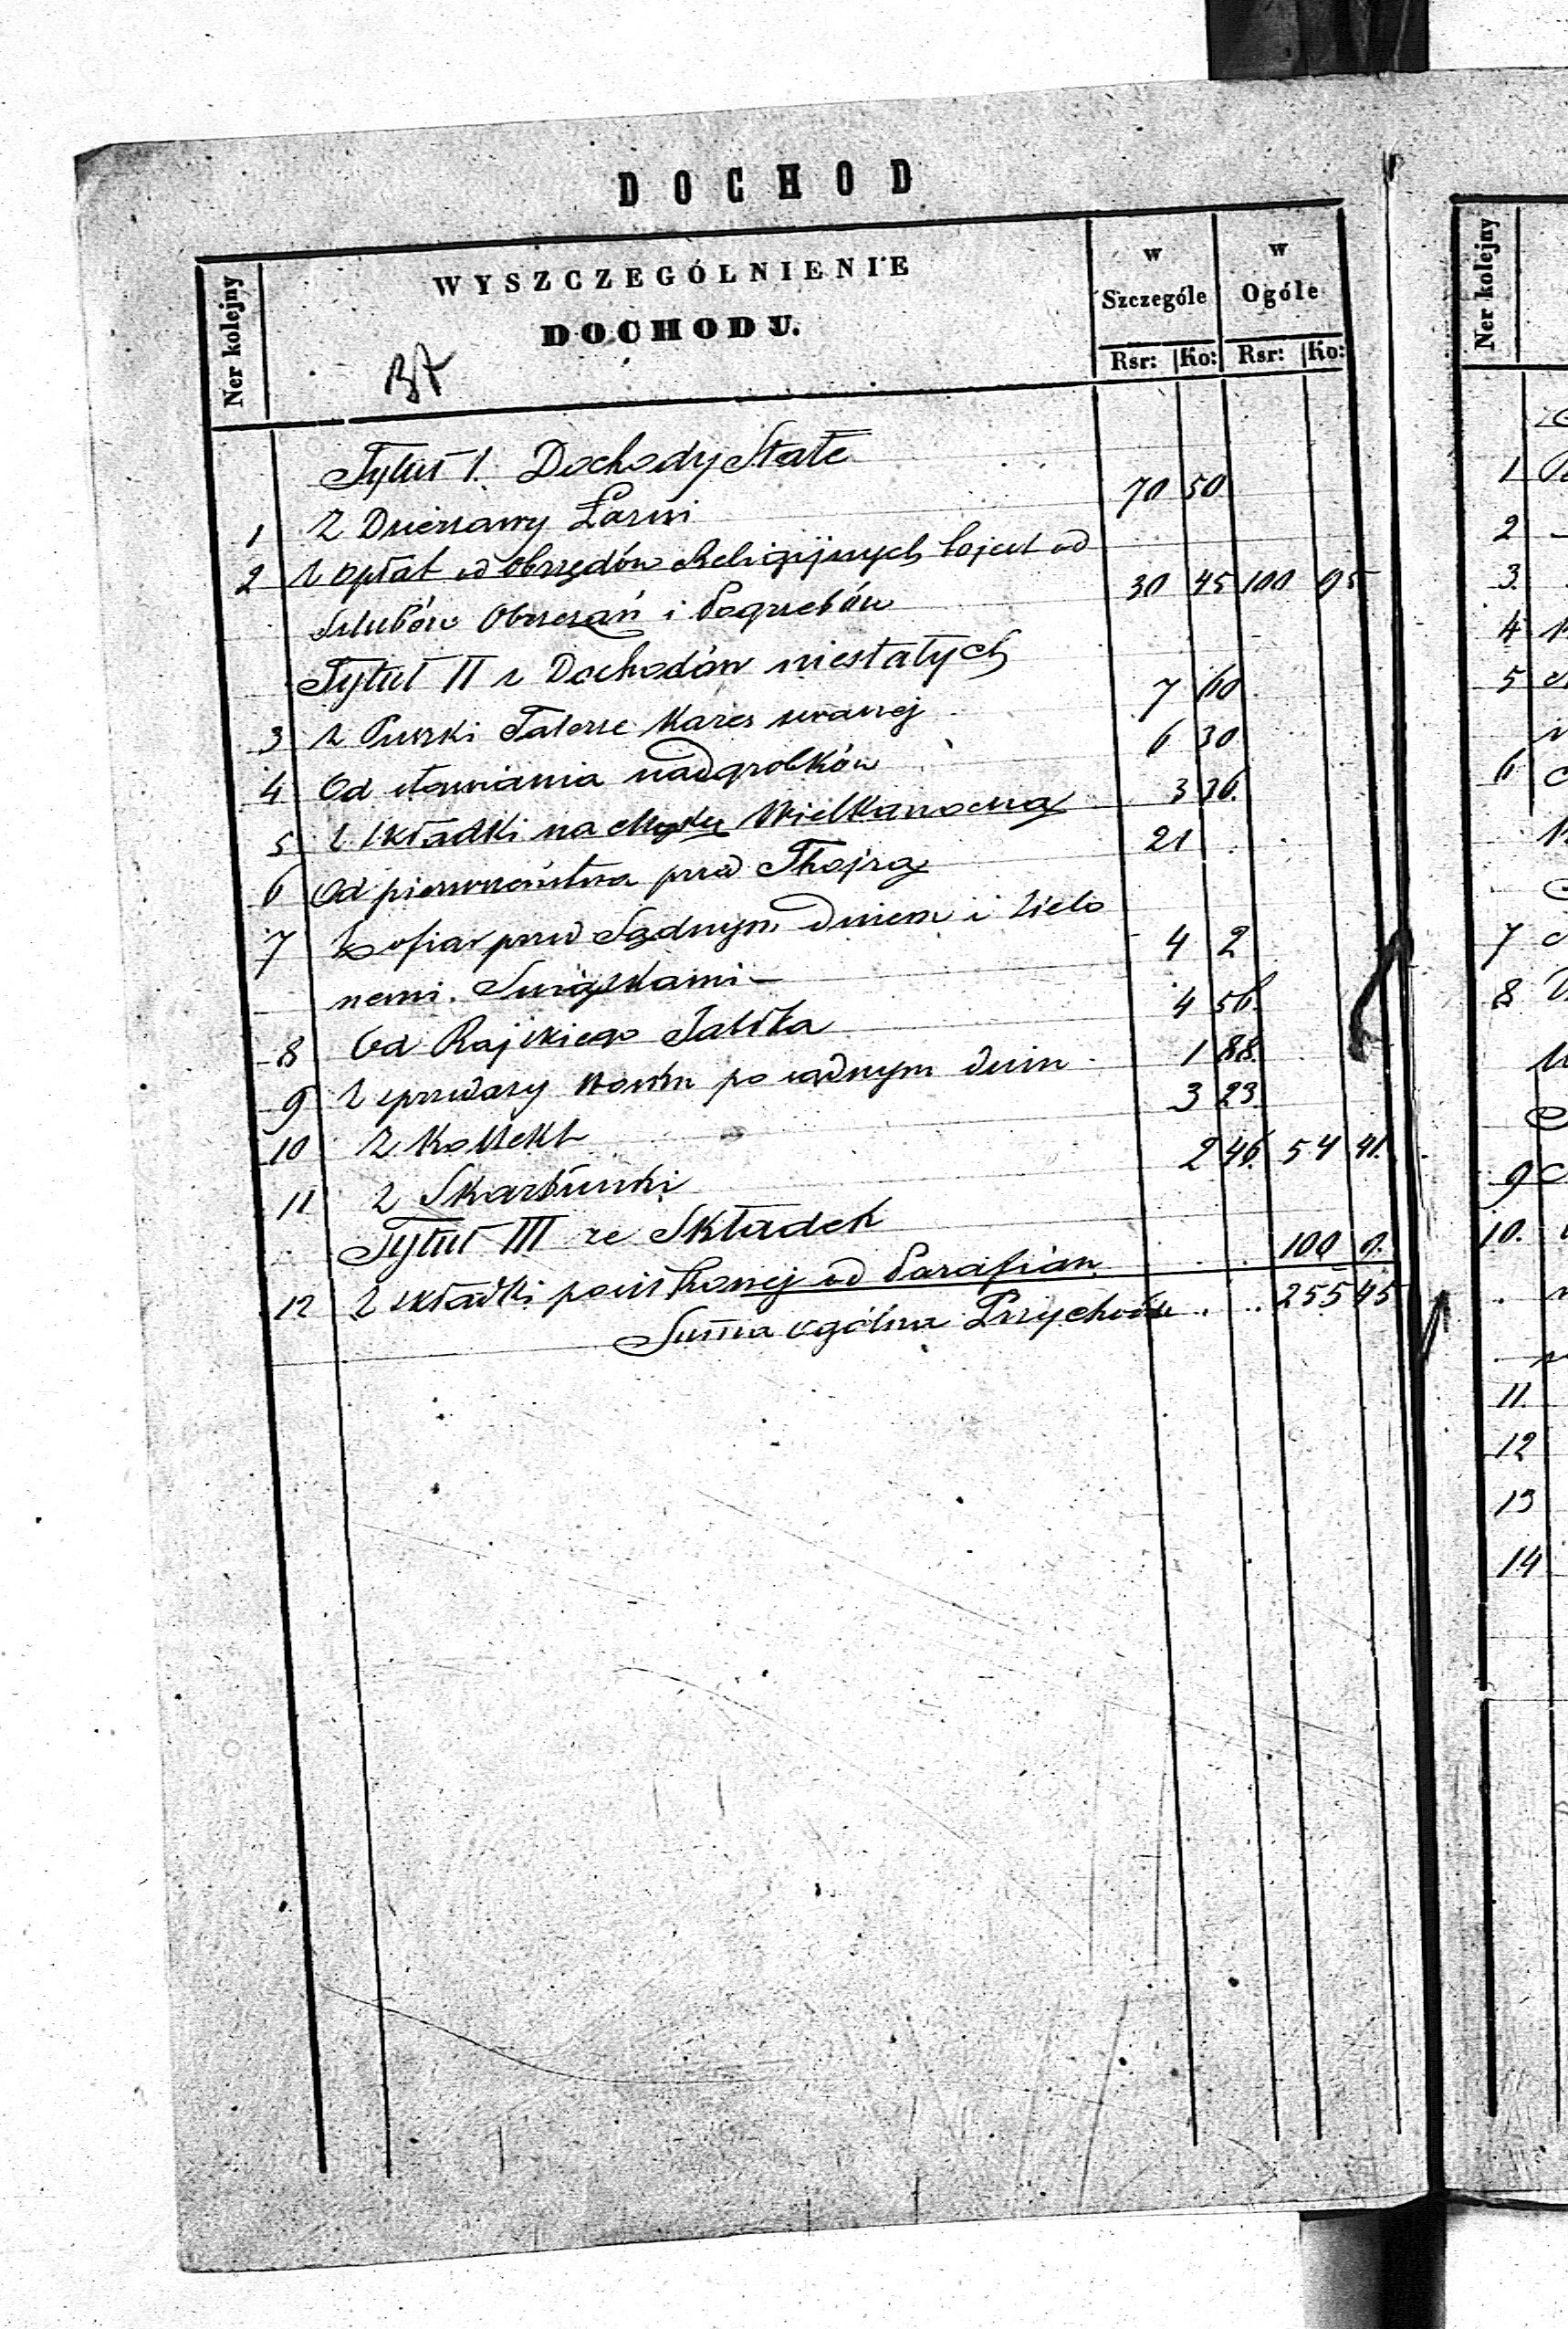 DOCHOD
Ner kolejny
WYSZCZEGÓLNIENIE
DOCHODU.
w Szczególe
w Ogóle
Rsr: Ko: Rsr: Ko:
Tytuł I. Dochody Stałe
1 Z Dzierżawy Łaźni 70 50
2 Z opłat od obrzędów Religijnych to jest od
Szlubów Obrzezań i Pogrzebów 30 45 100 95
Tytuł II z Dochodów niestałych
3 Z Puszki zwanej 7 60
4 Od stawiania nadgrobków 6 30
5 Z składki na Wielkanocną 3 36
6 Od pierwszeństwa przed Thojrą 21
7 Z ofiar przed Sądnym Dniem i Zielo
nemi Swiątkami 4 2
8 Od Rajskiego Jabłka 4 56
9 Z sprzedaży po sądnym dniu 1 88
10 Z Kollekt 3 23
11 Z Skarbunki 2 46 54 41
Tytuł III ze Składek
12 Z składki od Parafian 100 0
Summa ogólna Przychodu 255 45
Ner kolejny
1
2
3
4
5
6
7
8
9
10.
11.
12
13
14